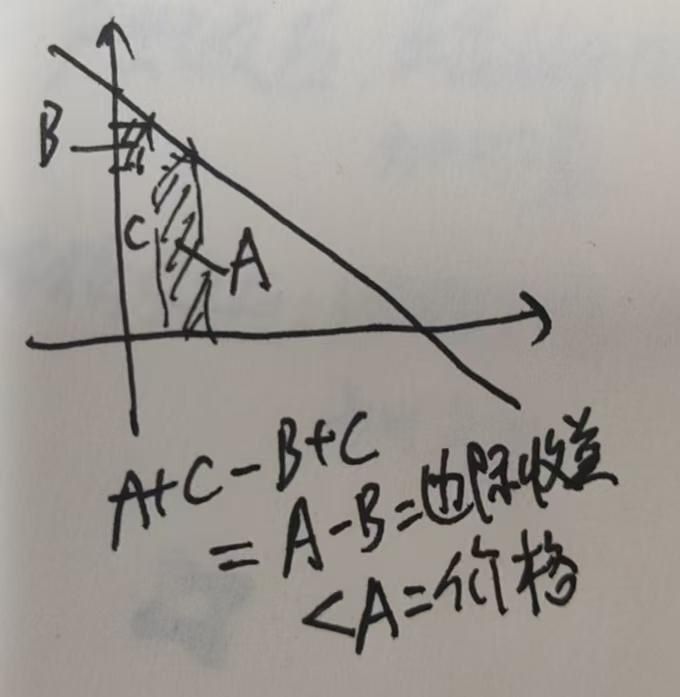 B
C
A
A+C-B+C
=A-B=边际收益
<A=价格